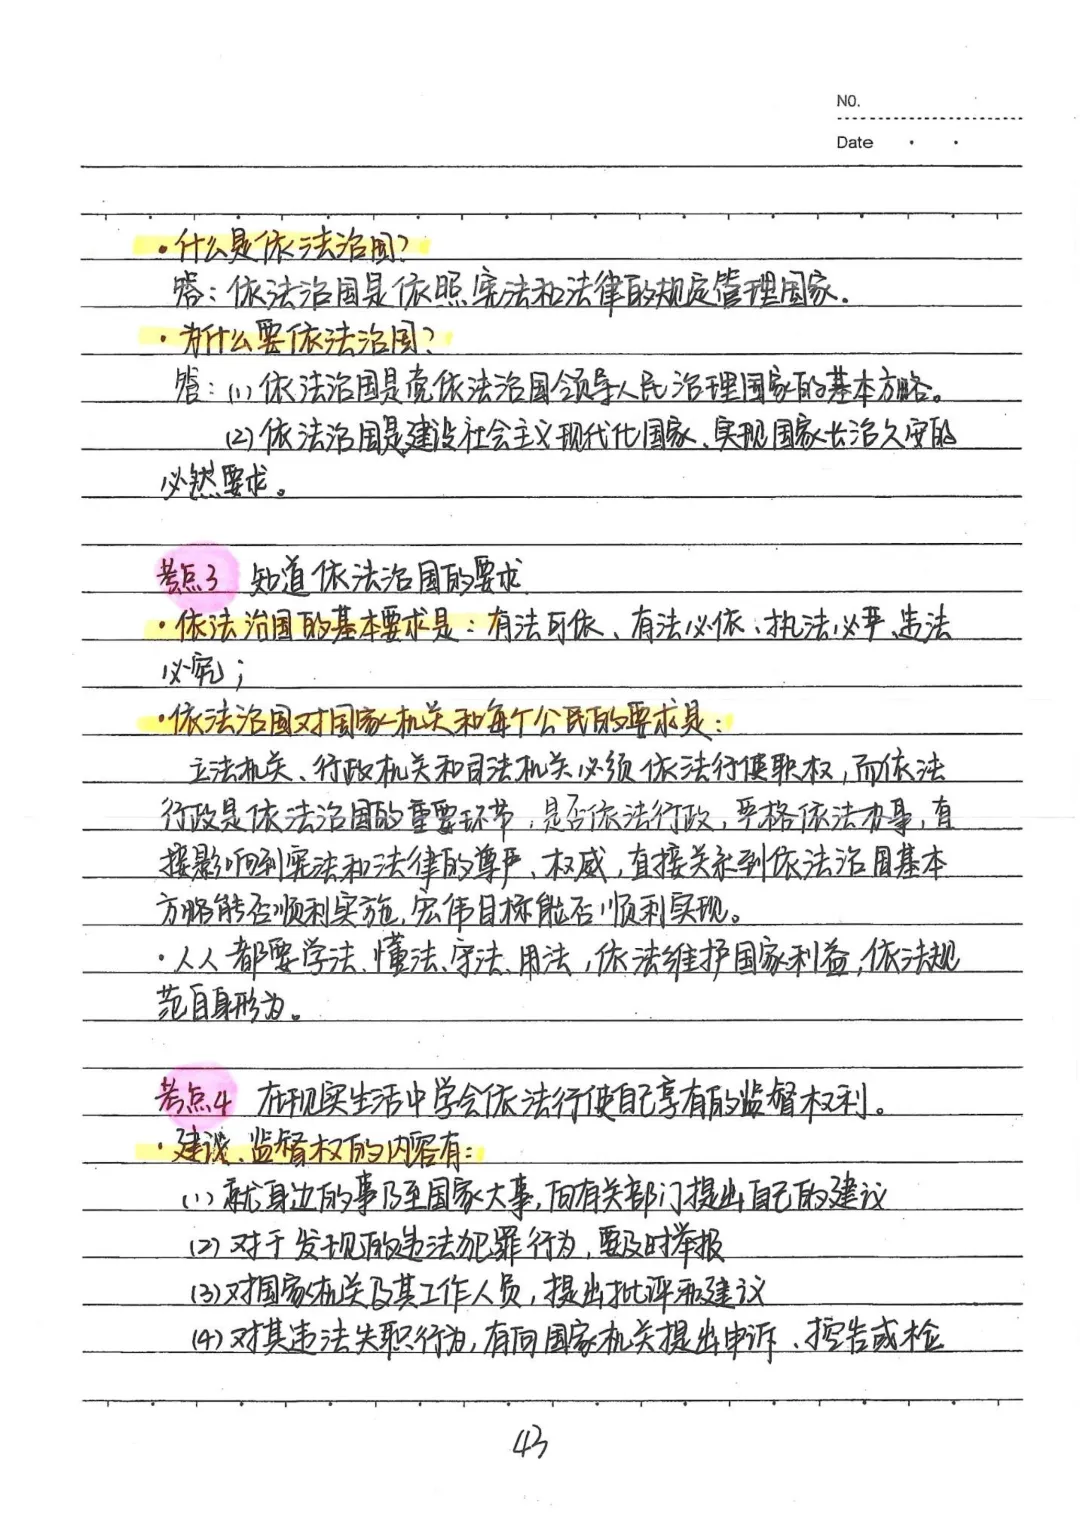 NO.
Date
·什么是依法治国?
答:依法治国是依照宪法和法律的规定管理国家。
·为什么要依法治国?
答:(1)依法治国是党依法治国领导人民治理国家的基本方略。
(2)依法治国是建设社会主义现代化国家、实现国家长治久安的
必然要求。
考点3 知道依法治国的要求
·依法治国的基本要求是:有法可依、有法必依、执法必严、违法
必究;
·依法治国对国家机关和每个公民的要求是:
立法机关、行政机关和司法机关必须依法行使职权,而依法
行政是依法治国的重要环节,是否依法行政,严格依法办事,直
接影响到宪法和法律的尊严、权威,直接关系到依法治国基本
方略能否顺利实施,宏伟目标能否顺利实现。
·人人都要学法、懂法、守法、用法,依法维护国家利益,依法规
范自身形为。
考点4 在现实生活中学会依法行使自己享有的监督权利。
·建议、监督权的内容有:
(1)就身边的事乃至国家大事,向有关部门提出自己的建议
(2)对于发现的违法犯罪行为,要及时举报
(3)对国家机关及其工作人员,提出批评和建议
(4)对其违法失职行为,有向国家机关提出申诉、控告或检
43